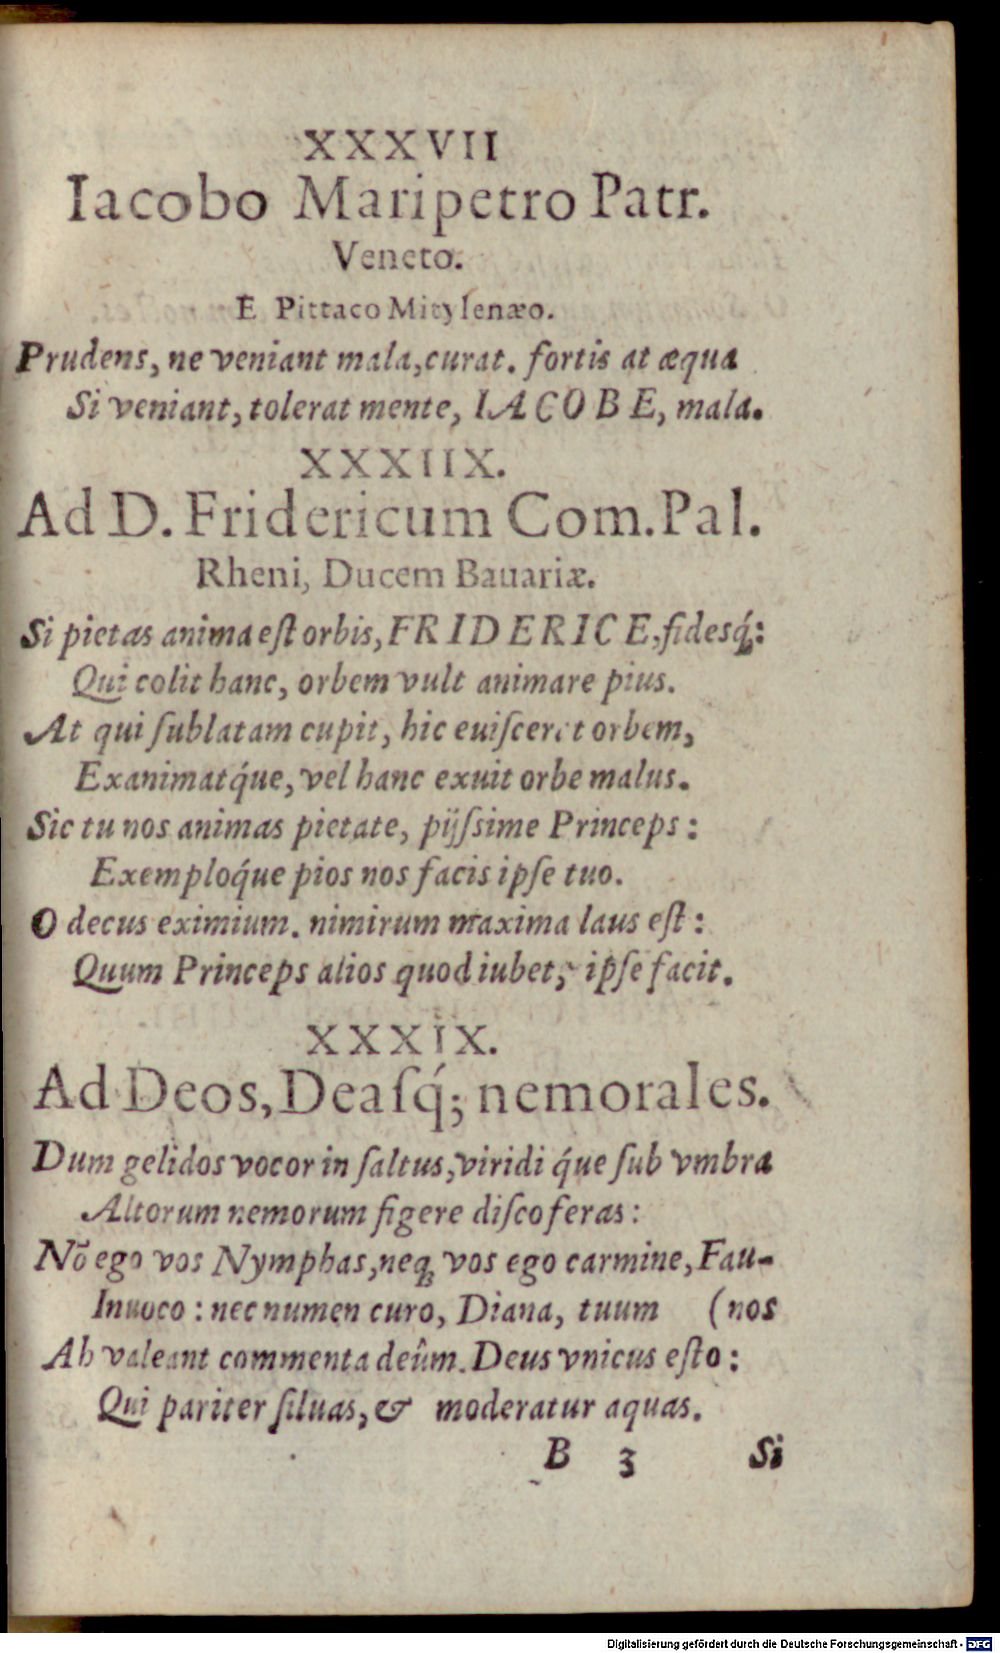 XXXVII
Iacobo Maripetro Patr.
Veneto.
E Pittaco Mitylenæo.
Prudens, ne veniant mala, curat. fortis at æqua
Si veniant, tolerat mente, IACOBE, mala.
XXXIIX.
Ad D. Fridericum Com. Pal.
Rheni, Ducem Bauariæ.
Si pietas anima eſt orbis, FRIDERICE, fidesq́;:
Qui colit hanc, orbem vult animare pius.
At qui ſublatam cupit, hic euiſceret orbem,
Exanimatq́ue, vel hanc exuit orbe malus.
Sic tu nos animas pietate, pijſsime Princeps:
Exemploq́ue pios nos facis ipſe tuo.
O decus eximium. nimirum maxima laus eſt:
Quum Princeps alios quod iubet, ipſe facit.
XXXIX.
Ad Deos, Deaſq́; nemorales.
Dum gelidos vocor in ſaltus, viridi q́ue ſub vmbra
Altorum nemorum figere diſco feras:
Nō ego vos Nymphas, neq; vos ego carmine, Fau-
Inuoco: nec numen curo, Diana, tuum (nos
Ah valeant commenta deûm. Deus vnicus eſto:
Qui pariter ſiluas, & moderatur aquas.
B 3 Si
Digitalisierung gefördert durch die Deutsche Forschungsgemeinschaft - DFG